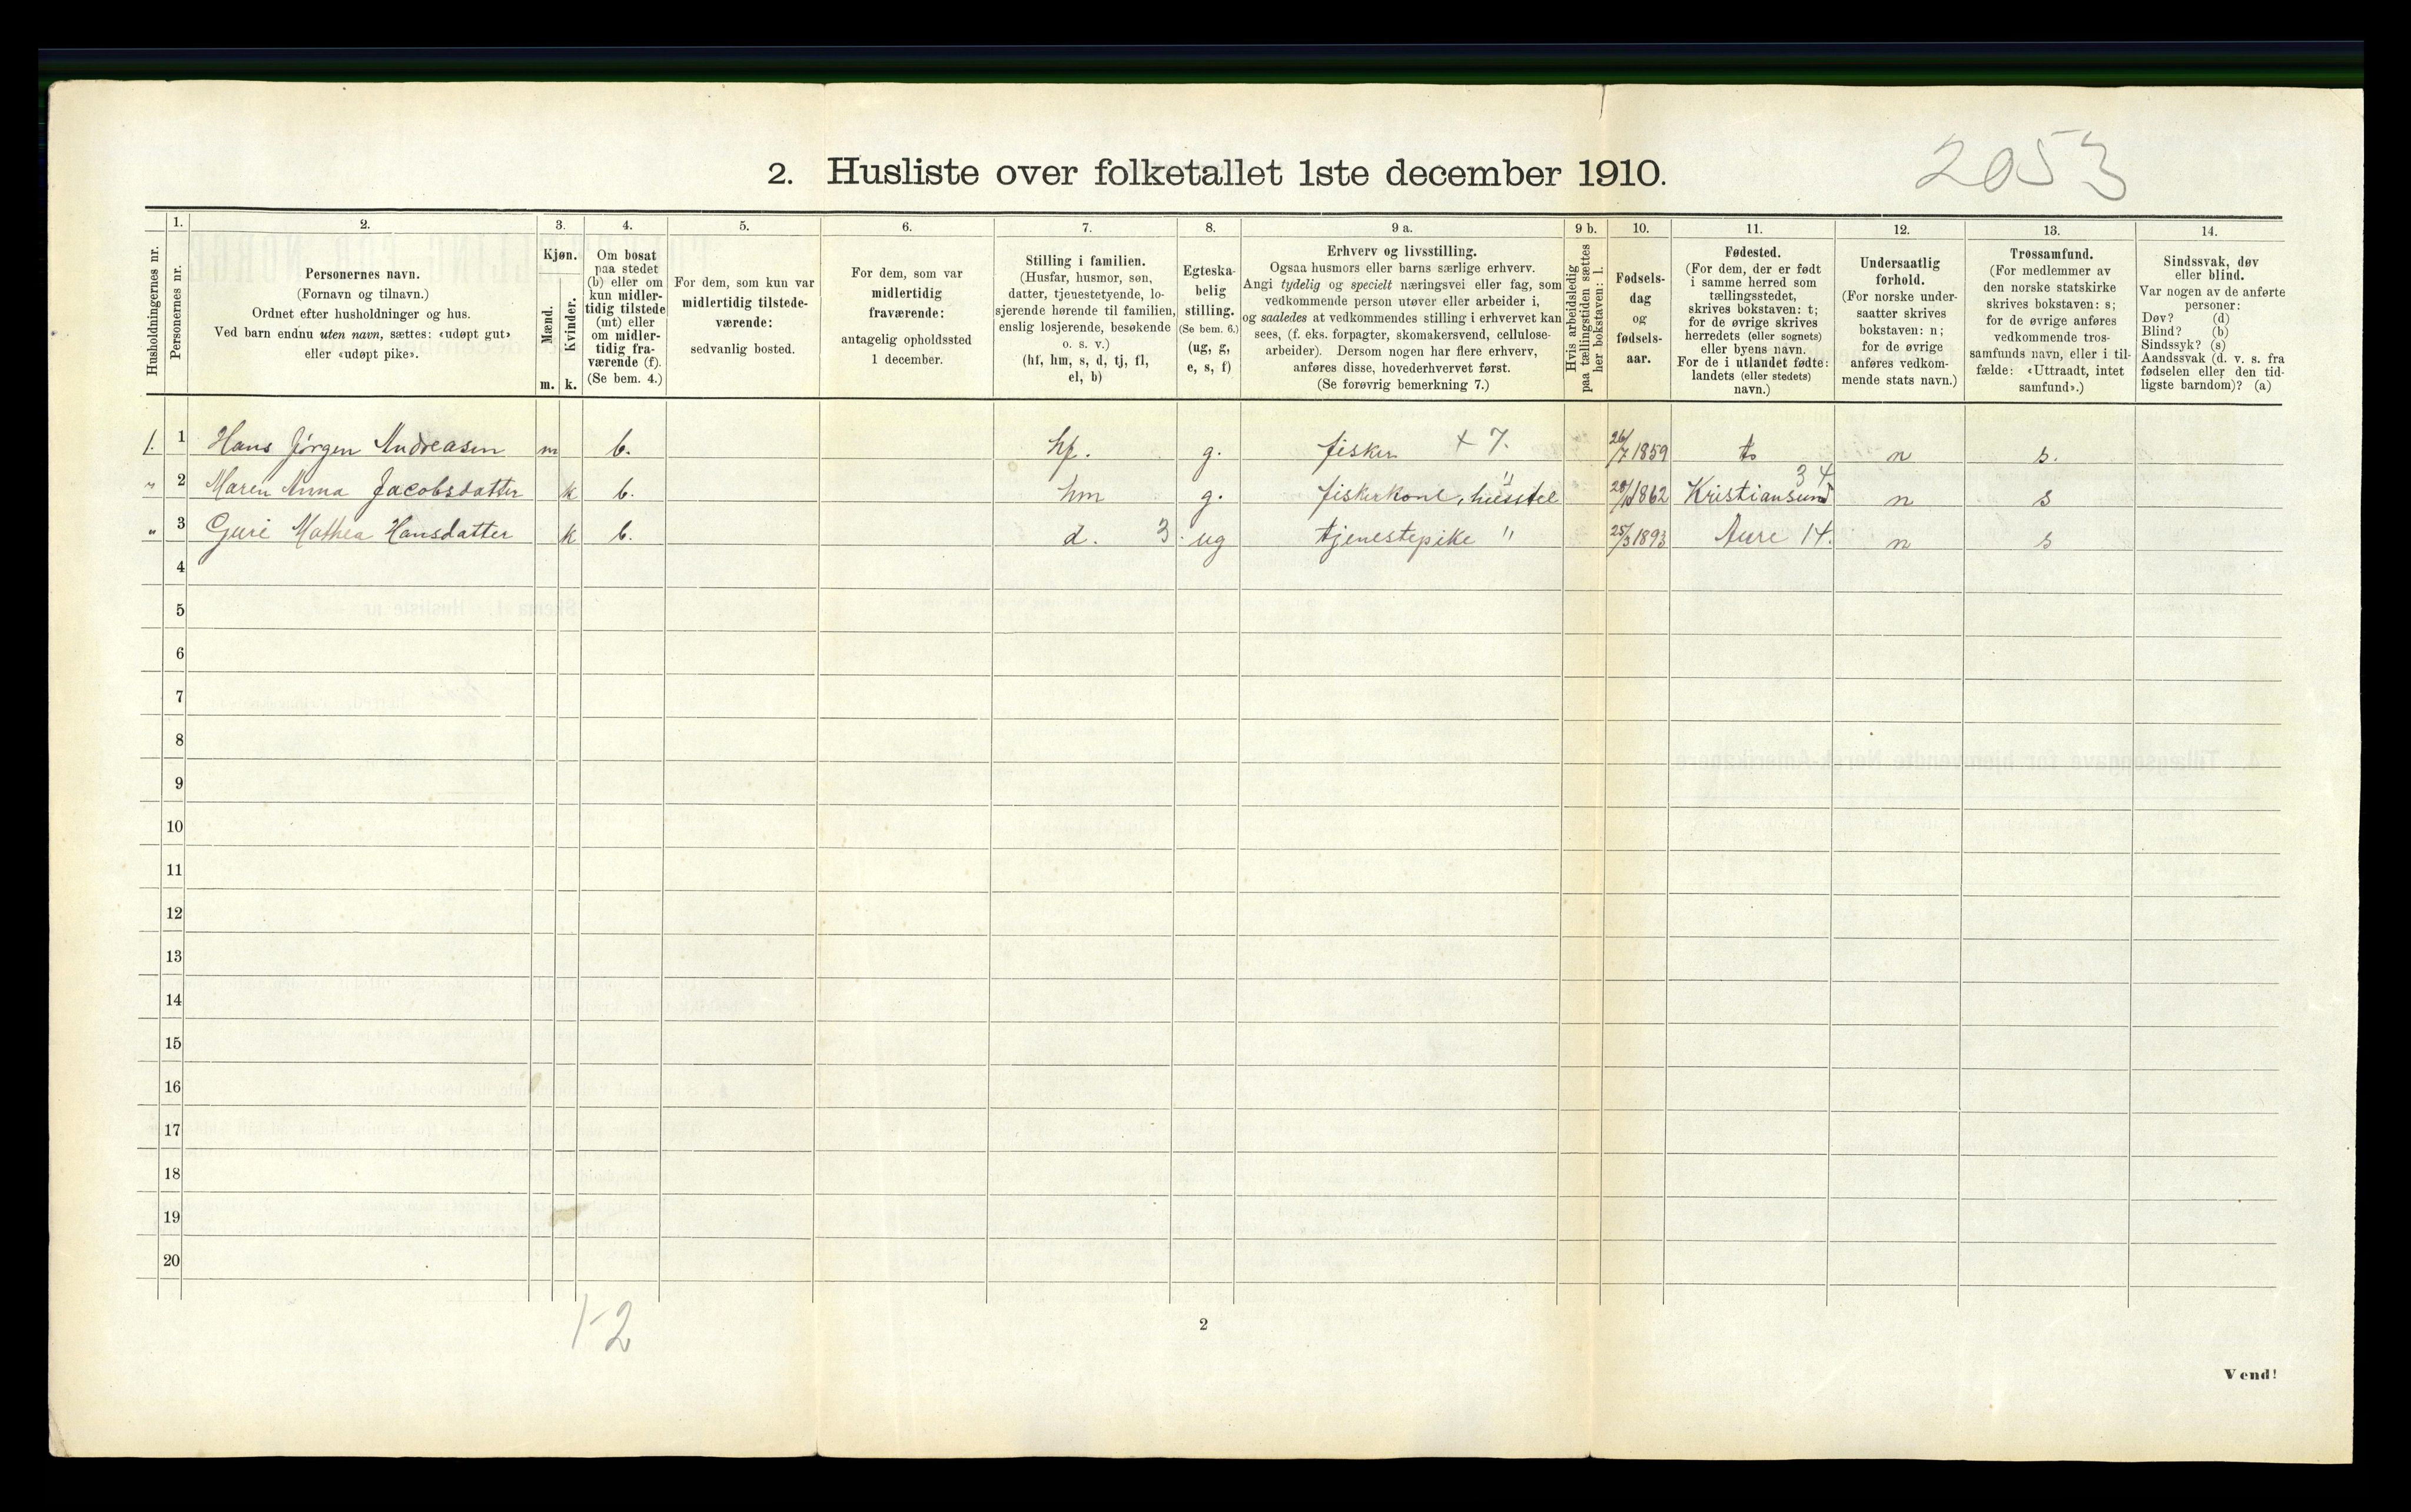 2. Husliste over folketallet 1ste december 1910.
2053
Husholdningernes nr.
1.
Personernes nr.
2.
Personernes navn.
(Fornavn og tilnavn.)
Ordnet efter husholdninger og hus.
Ved barn endnu uten navn, sættes: «udøpt gut»
eller «udøpt pike».
3.
Kjøn.
Mænd.
Kvinder.
m. k.
4.
Om bosat
paa stedet
(b) eller om
kun midler-
tidig tilstede
(mt) eller
om midler-
tidig fra-
værende (f).
(Se bem. 4.)
5.
For dem, som kun var
midlertidig tilstede-
værende:
sedvanlig bosted.
6.
For dem, som var
midlertidig
fraværende:
antagelig opholdssted
1 december.
7.
Stilling i familien.
(Husfar, husmor, søn,
datter, tjenestetyende, lo-
sjerende hørende til familien,
enslig losjerende, besøkende
o. s. v.)
(hf, hm, s, d, tj, fl,
el, b)
8.
Egteska-
belig
stilling.
(Se bem. 6.)
(ug, g,
e, s, f)
9 a.
Erhverv og livsstilling.
Ogsaa husmors eller barns særlige erhverv.
Angi tydelig og specielt næringsvei eller fag, som
vedkommende person utøver eller arbeider i,
og saaledes at vedkommendes stilling i erhvervet kan
sees, (f. eks. forpagter, skomakersvend, cellulose-
arbeider). Dersom nogen har flere erhverv,
anføres disse, hovederhvervet først.
(Se forøvrig bemerkning 7.)
9 b.
Hvis arbeidsledig
paa tællingstiden sættes
her bokstaven: l.
10.
Fødsels-
dag
og
fødsels-
aar.
11.
Fødested.
(For dem, der er født
i samme herred som
tællingsstedet,
skrives bokstaven: t;
for de øvrige skrives
herredets (eller sognets)
eller byens navn.
For de i utlandet fødte:
landets (eller stedets)
navn.)
12.
Undersaatlig
forhold.
(For norske under-
saatter skrives
bokstaven: n;
for de øvrige
anføres vedkom-
mende stats navn.)
13.
Trossamfund.
(For medlemmer av
den norske statskirke
skrives bokstaven: s;
for de øvrige anføres
vedkommende tros-
samfunds navn, eller i til-
fælde: «Uttraadt, intet
samfund».)
14.
Sindssvak, døv
eller blind.
Var nogen av de anførte
personer:
Døv? (d)
Blind? (b)
Sindssyk? (s)
Aandssvak (d. v. s. fra
fødselen eller den tid-
ligste barndom)? (a)
1. 1 Hans Jörgen Andreasen m b. hf. g. fisker + 7. 26/7 1859 t n s.
" 2 Maren Anna Jacobsdatter k b. hm g. fiskerkone, husstel " 1862 Kristiansund 34 n s
" 3 Guri Mathea Hansdatter k b. d. 3 ug tjenestepike " 25/3 1893 Aure 14. n s
4
5
6
7
8
9
10
11
12
13
14
15
16
17
18
19
20
1-2
2
Vend!